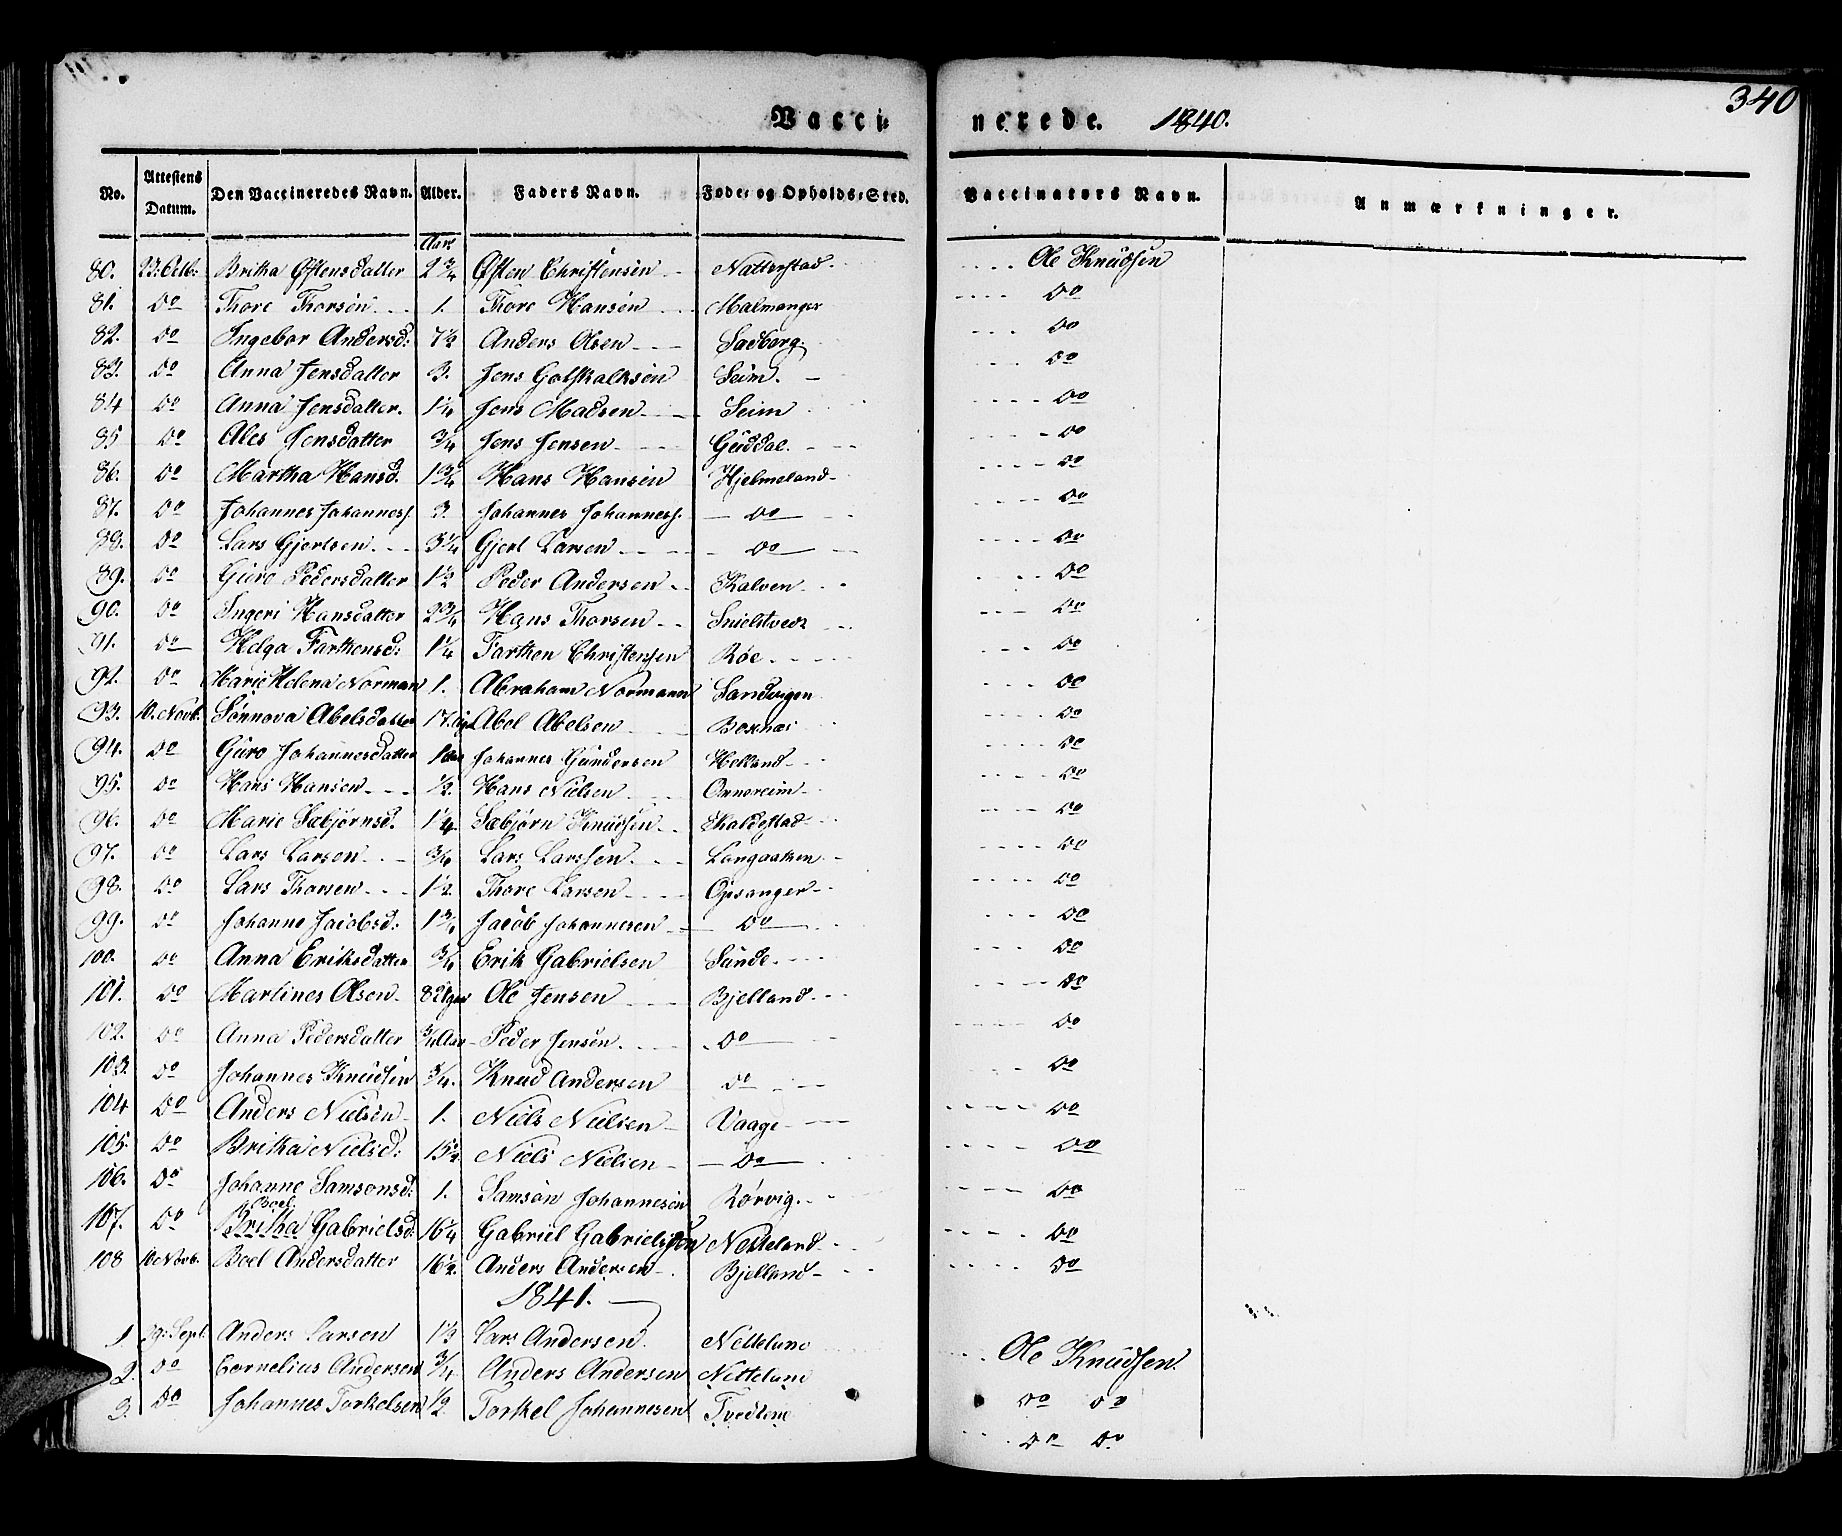 340
Vaccinerede. 1840.
No. | Attestens Datum. | Den Vaccineredes Navn. | Alder. | Faders Navn. | Føde- og Opholds-Sted. | Vaccinators Navn. | Anmærkninger.
Aar
80. Britha Østensdatter 2 3/4 Østen Christensen Natterstad. Ole Knudsen
81. Do Thore Thorsen 1. Thore Hansen Malmanger Do
82. Do Ingebor Andersd: 7 1/2 Anders Olsen Sadberg. Do
83. Do Anna Jensdatter 3. Jens Gotskalksen Seim. Do
84 Do Anna Jensdatter. 1 1/4 Jens Madsen Seim Do
85 Do Ales Jensdatter 3/4 Jens Jensen Guddal. Do
86. Do Martha Hansd. 1 3/4 Hans Hansen Hjelmeland Do
87. Do Johannes Johanness. 3. Johannes Johanness. Do Do
88. Do Lars Gjertsen 3 1/4 Gjert Larsen Do Do
89. Do Guro Pedersdatter 1 1/2 Peder Andersen Kalven Do
90. Do Ingeri Hansdatter 2 3/4 Hans Thorsen Do
91. Do Helga Tarkensd: 1 1/4 Tarken Christensen Røe Do
92. Do Marie Helena Norman 1. Abraham Normann Sandvigen Do
93. 10. Novb. Sønnova Abelsdatter 17 Abel Abelsen Do
94. Do Guro Johannesdatter 1 Aar Johannes Gundersen Helland Do
95. Do Hans Hansen 1/2. Hans Nielsen Do
96. Do Marie Sæbjørnsd. 1 1/4. Sæbjørn Knudsen Skaldestad Do
97. Do Lars Larsen 3/4 Lars Larssen. Langaaken Do
98. Do Lars Thorsen 1 1/2. Thore Larsen Opsanger Do
99. Do Johanne Jacobsd: 1 3/4 Jacob Johannesen Do Do
100. Do Anna Eriksdatter 3/4 Erik Gabrielsen Sunde Do
101. Do Martines Olsen 8 Uger Ole Jensen Bjelland Do
102. Do Anna Pedersdatter 3/4 Aar Peder Jensen. Do Do
103. Do Johannes Knudsen 3/4. Knud Andersen Do Do
104 Do Anders Nielsen 1. Niels Nielsen Vaage Do
105. Do Britha Nielsd: Niels Nielsen Do Do
106. Do Johanne Samsonsd: 1. Samson Johannesen Rørvig. Do
Boel
107. Do Britha Gabrielsd: 16 1/4 Gabriel Gabrielsen Netteland Do
108 10 Novb. Boel Andersdatter 16 1/2. Anders Andersen Bjelland Do
1841.
1 29: Sept: Anders Larsen 1 1/2 Lars Andersen. Nettelund Ole Knudsen
2. Do Cornelius Andersen 3/4 Anders Andersen Nettelund Do Do
3. Do Johannes Torkelsen 1/2. Torkel Johannesen Tvedten Do Do